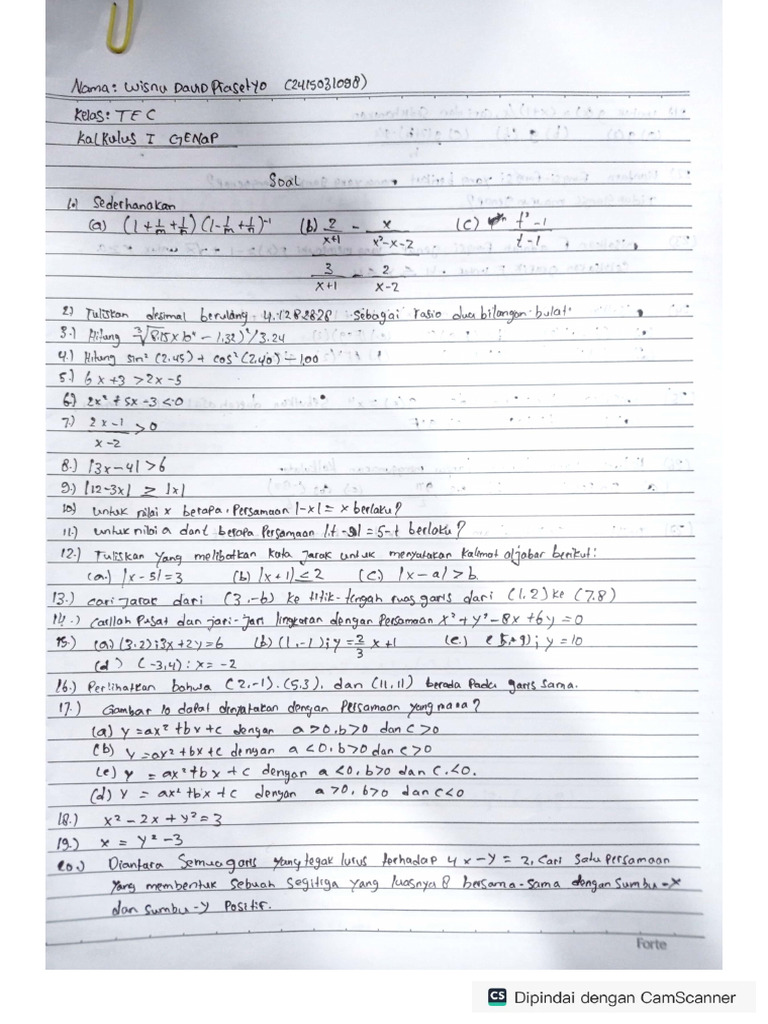 Nama: Wisnu David Prasetyo (2415031098)
Kelas: TEC
Kalkulus I GENAP
Soal
1.) Sederhanakan
(a) (1 + 1/m + 1/n) (1 - 1/m + 1/n)⁻¹ (b) 2/x+1 - x/x²-x-2 (c) t³-1/t-1
3/x+1 - 2/x-2
2) Tuliskan desimal berulang 4.1282828 sebagai rasio dua bilangan bulat.
3.) Hitung ∛(8.15 x 10⁴ - 1.32)²/3.24
4.) Hitung sin² (2.45) + cos² (2.40) - 1.00
5.) 6x+3 > 2x-5
6.) 2x² + 5x - 3 < 0
7.) 2x-1/x-2 > 0
8.) |3x-4| > 6
9.) |12-3x| ≥ |x|
10) Untuk nilai x berapa, Persamaan |-x| = x berlaku?
11.) untuk nilai a dan t berapa Persamaan |t-5| = 5-t berlaku?
12.) Tuliskan Yang melibatkan kata Jarak untuk menyatakan kalimat aljabar berikut:
(a.) |x-5|=3 (b) |x+1| ≤ 2 (c) |x-a| > b
13.) cari Jarak dari (3,-6) ke titik-tengah ruas garis dari (1,2) ke (7,8)
14.) carilah Pusat dan jari-jari lingkaran dengan Persamaan x² + y² - 8x + 6y = 0
15.) (a) (3.2); 3x + 2y = 6 (b) (1,-1); y = 2/3 x + 1 (c.) (5,9); y = 10
(d) (-3,4): x = -2
16.) Perlihatkan bahwa (2,-1). (5,3), dan (11,11) berada Pada garis sama.
17.) Gambar 10 dapat dinyatakan dengan Persamaan yang mana?
(a) y = ax² + bx + c dengan a > 0, b > 0 dan c > 0
(b) y = ax² + bx + c dengan a < 0, b > 0 dan c > 0
(c) y = ax² + bx + c dengan a < 0, b > 0 dan c. < 0.
(d) y = ax² + bx + c dengan a > 0, b > 0 dan c < 0
18.) x² - 2x + y² = 3
19.) x = y² - 3
20.) Diantara Semua garis yang tegak lurus terhadap 4x - y = 2, Cari Satu Persamaan
Yang membentuk sebuah segitiga yang luasnya 8 bersama-sama dengan sumbu-x
dan sumbu-y Positif.
Forte
CS Dipindai dengan CamScanner